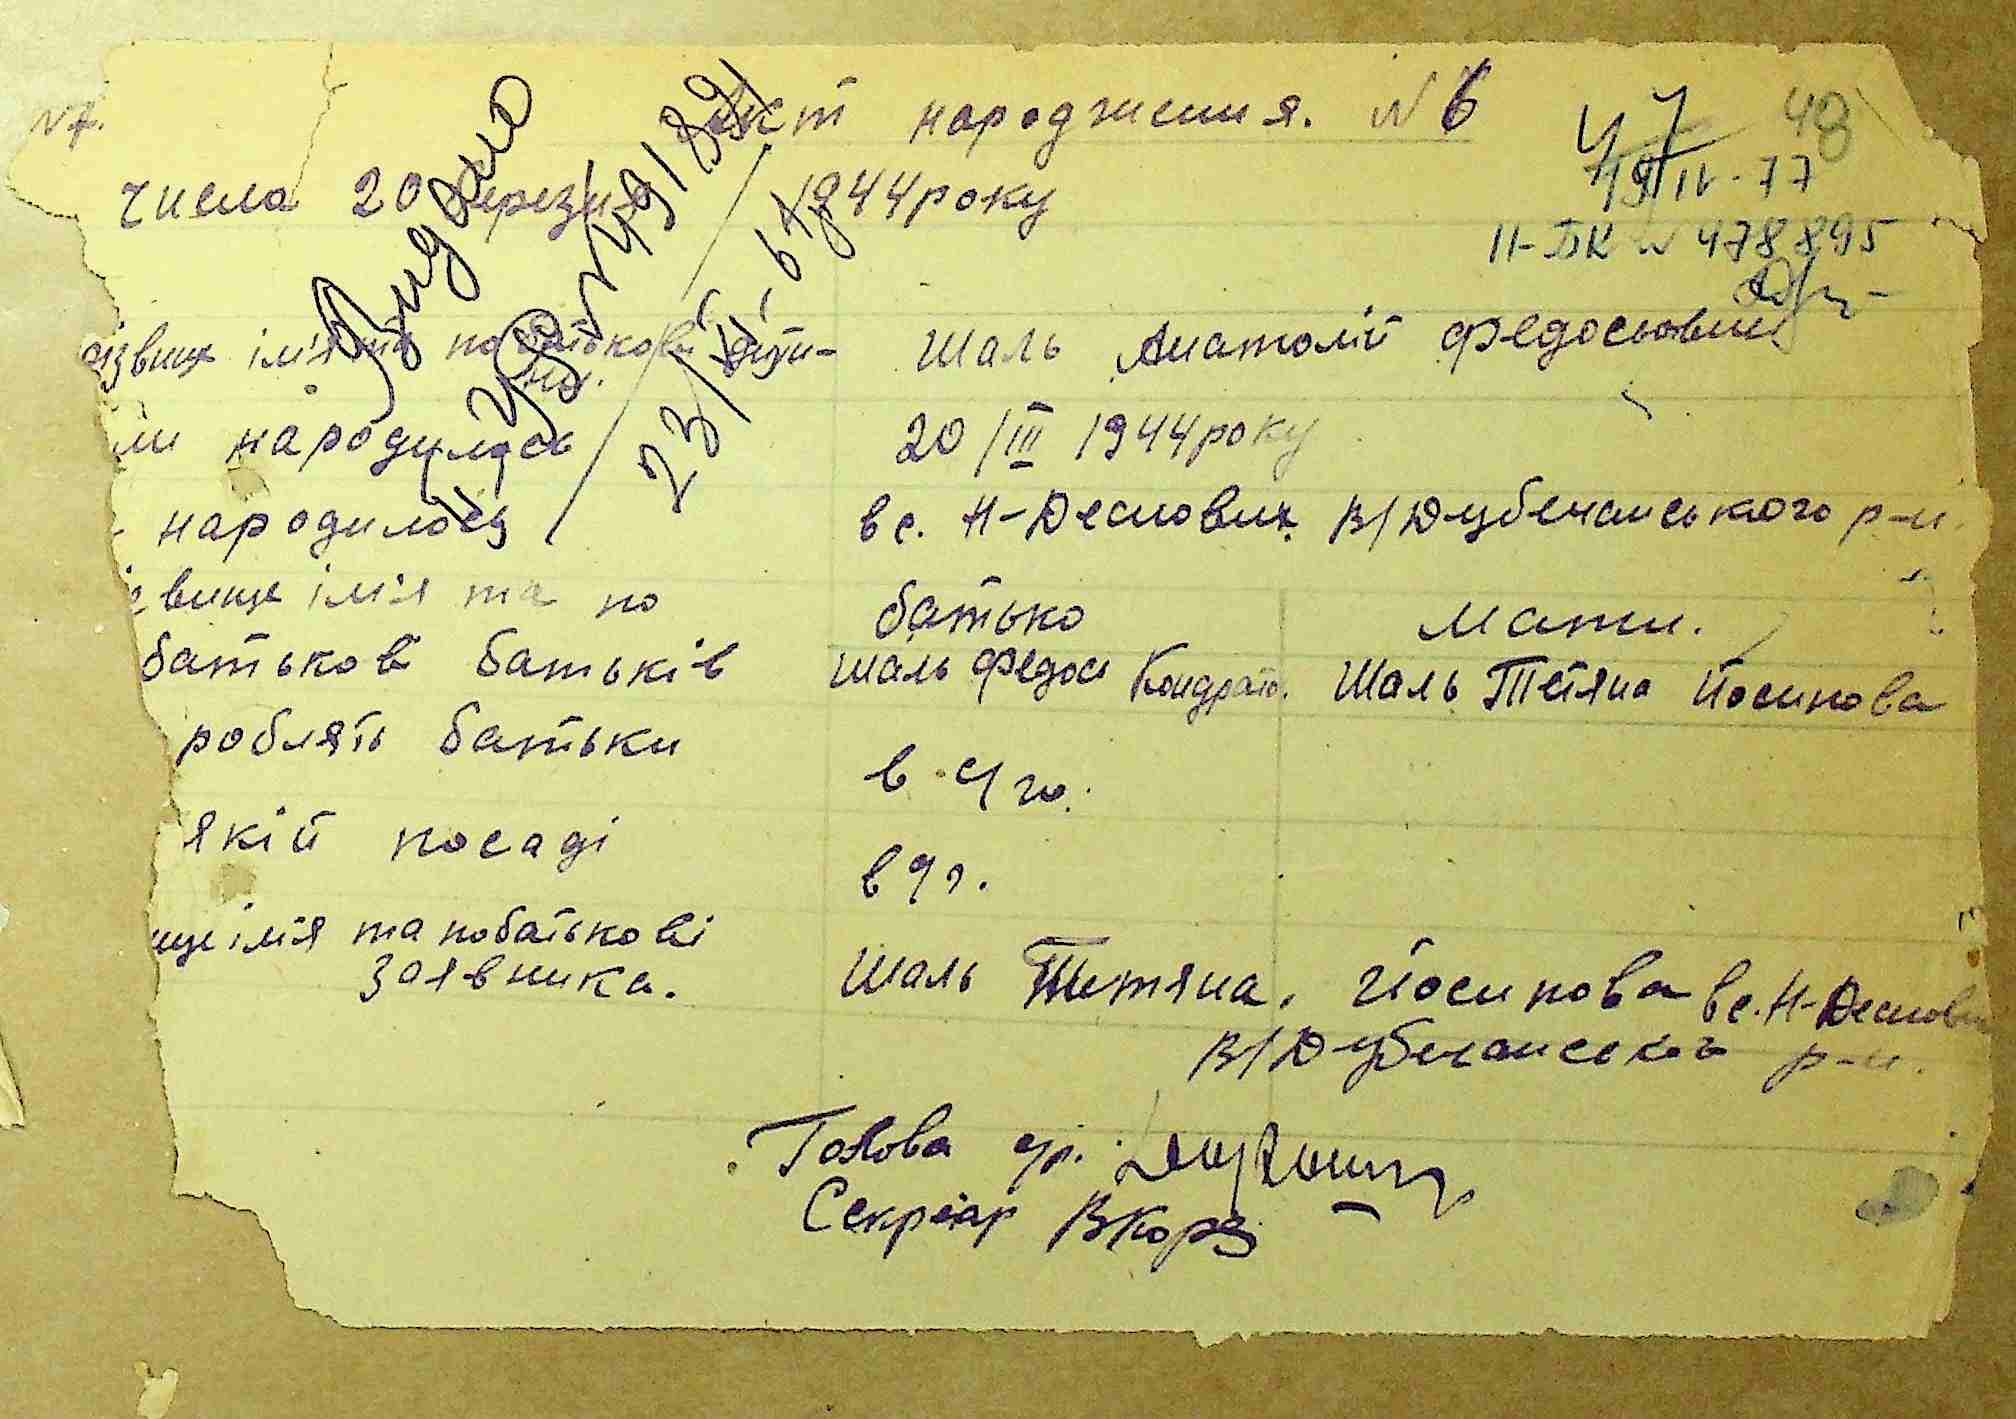 N 7.
Акт народження. N 6
47 48
19 IV-77
II-БК N 478895
числа 20 березня 1944 року
Видано
23/II-67
різвище ім'я та по батькові дити-
ни.
Шаль Анатолій Федосіович
ли народилось
20/III 1944 року
народилось
в с. Н-Деснович В/Дубечанського р-н.
звище ім'я та по
батькові батьків
батько
мати.
Шаль Федос Кондрат. Шаль Тетяна Йосипова
роблять батьки
в с/го.
якій посаді
ище ім'я та по батькові
заявника.
Шаль Титяна. Йосипова в с. Н-Деснович
В/Дубечанског р-н.
Голова с/р.
Секретар ВКорз